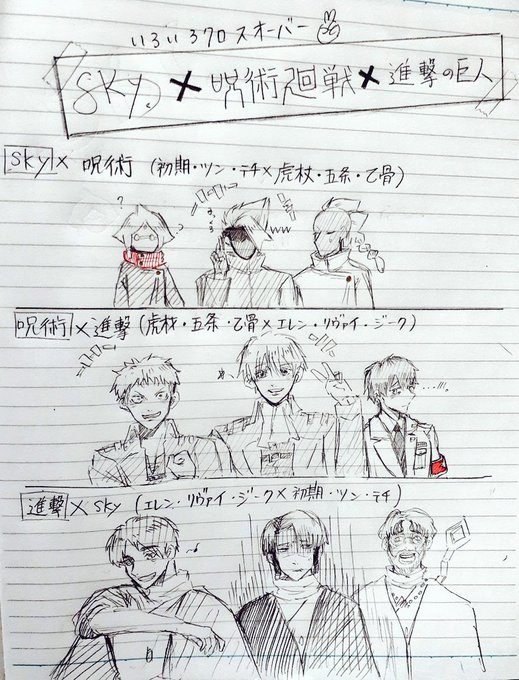 いろいろクロスオーバー
sky × 呪術廻戦 × 進撃の巨人
sky × 呪術 (初期・ツン・テチ × 虎杖・五条・乙骨)
?
ww
呪術 × 進撃 (虎杖・五条・乙骨 × エレン・リヴァイ・ジーク)
…!!!。
進撃 × sky (エレン・リヴァイ・ジーク × 初期・ツン・テチ)
♪